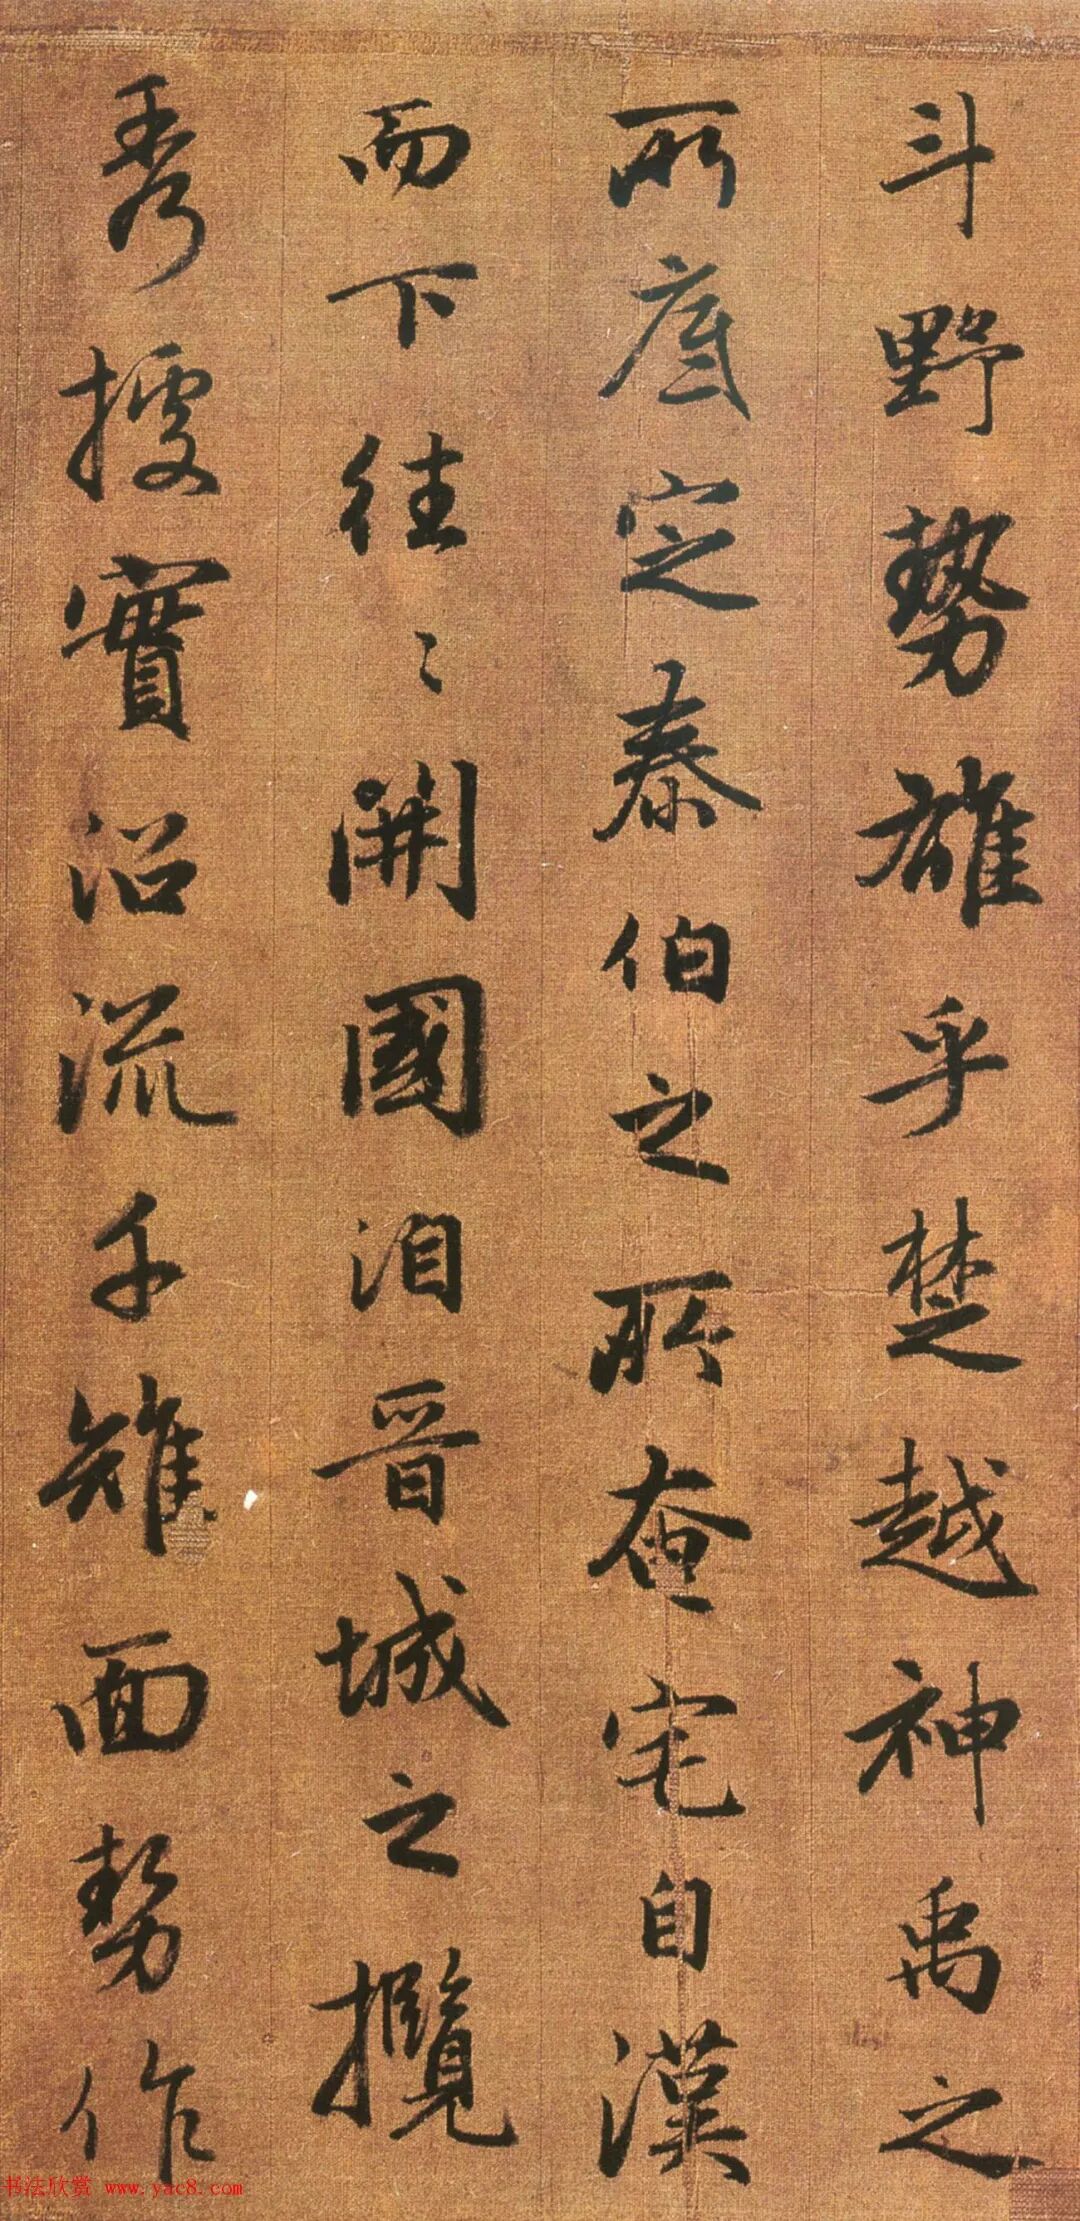 斗野勢雄乎楚越神禹之
所底定泰伯之所奄宅自漢
而下往々開國洎晉城之攬
秀據實沿流千雉面勢作
书法欣赏 www.yac8.com